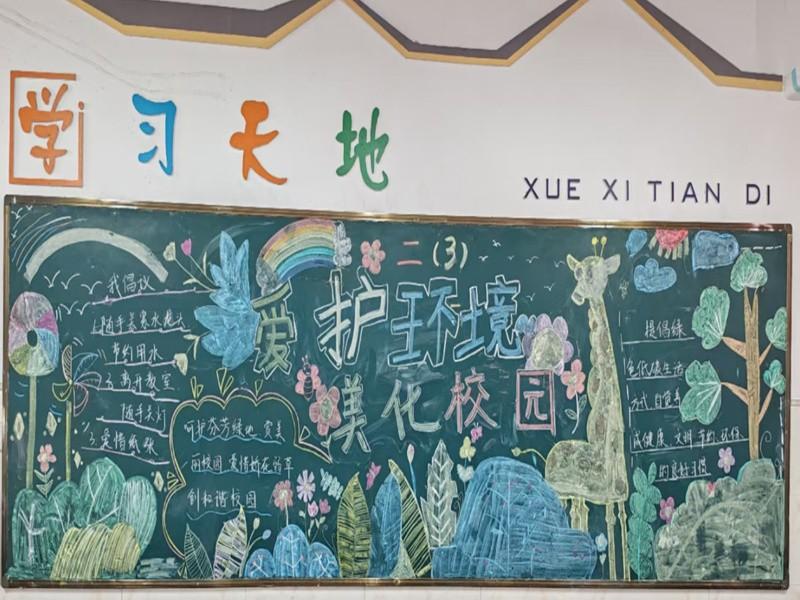 学习天地
XUE XI TIAN DI
二(3)
爱护环境
美化校园
我倡议
1.随手关紧水龙头
节约用水
2.离开教室
随手关灯
3.爱惜纸张
呵护芬芳绿地 爱美
丽校园 爱惜
创和谐校园
提倡绿
色低碳生活
方式 自觉养
成健康、文明、节约、环保
的良好习惯